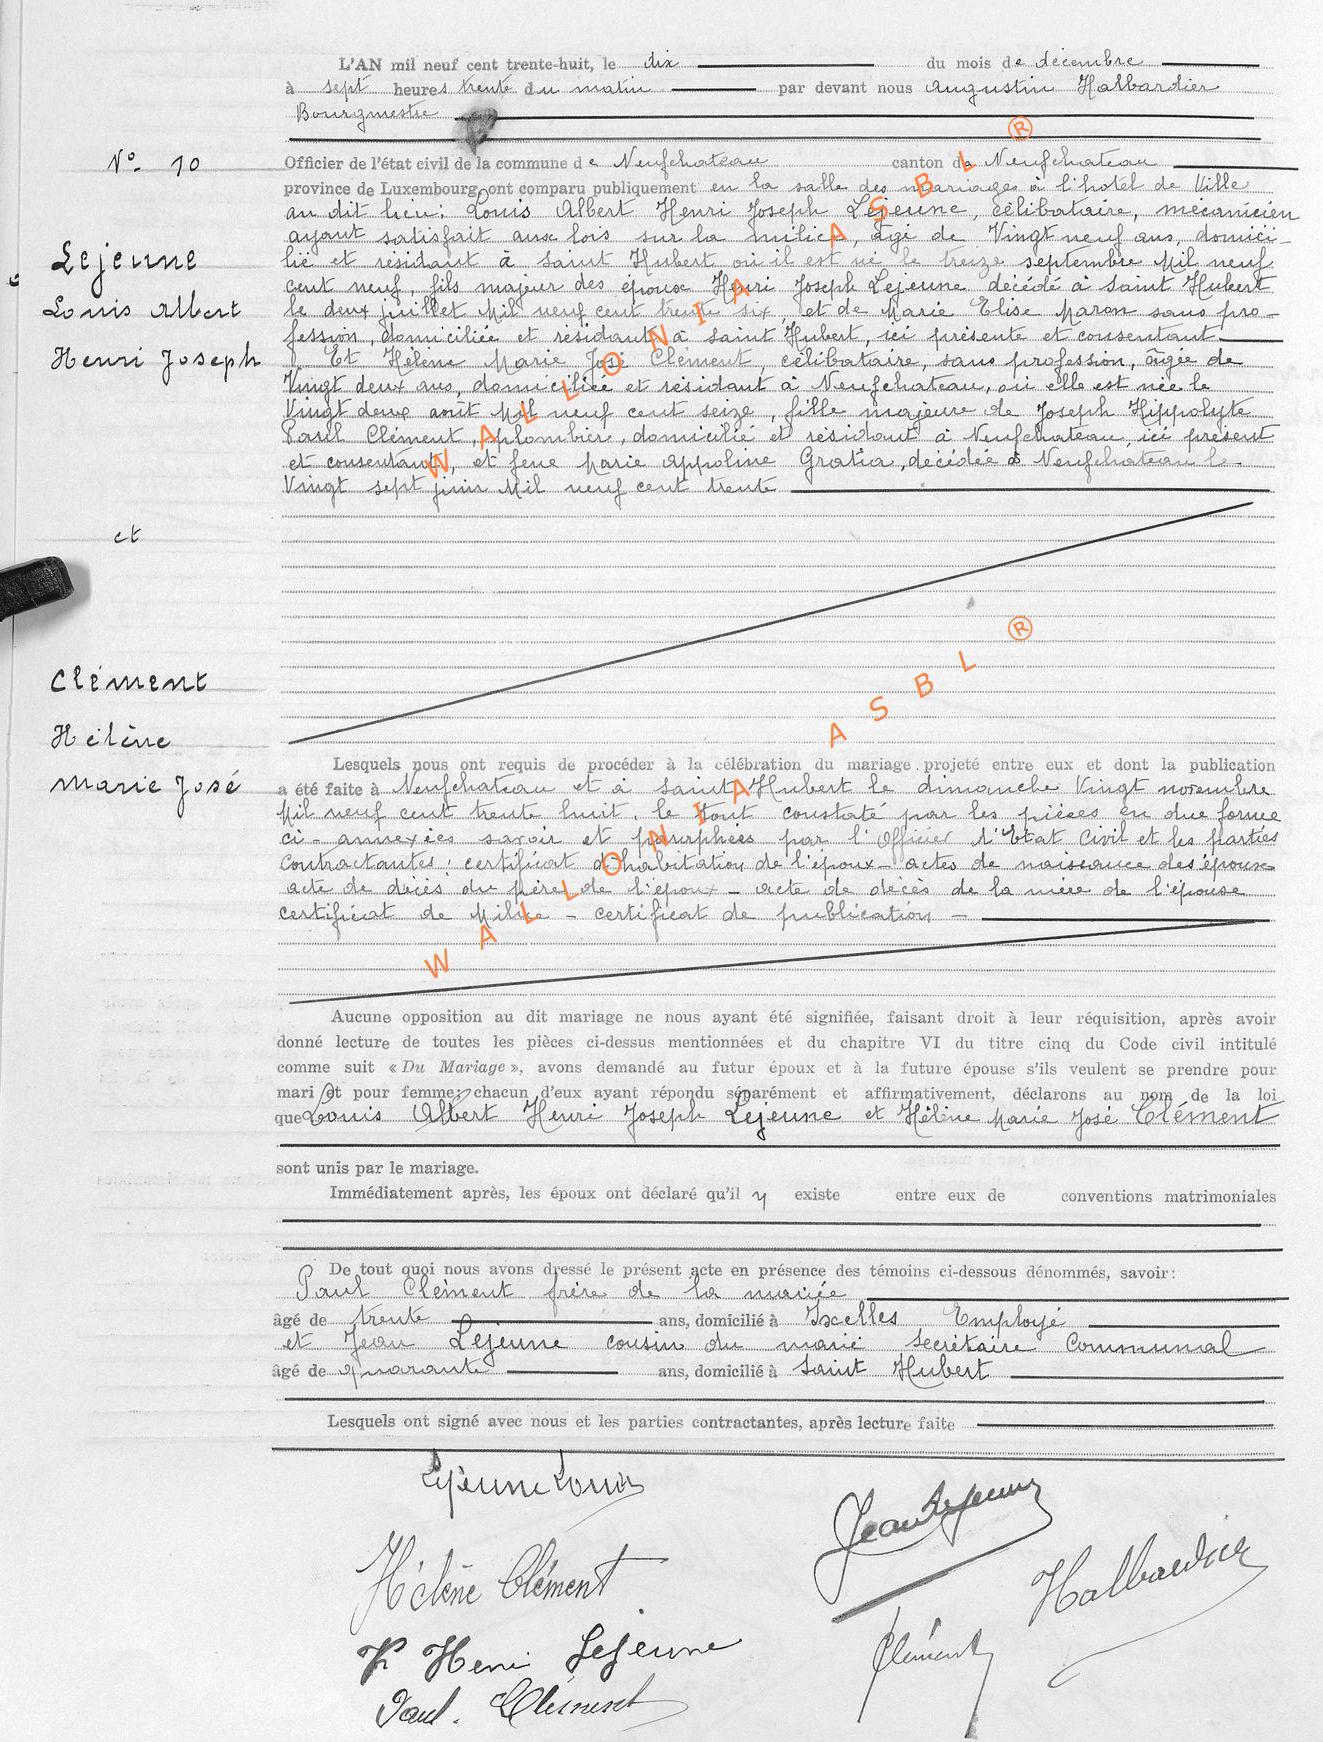 L'AN mil neuf cent trente-huit, le dix du mois de décembre
à sept heures trente du matin par devant nous Augustin Halbardier
Bourgmestre
N° 10
Officier de l'état civil de la commune de Neufchateau canton de Neufchateau
province de Luxembourg, ont comparu publiquement en la salle des mariages à l'hotel de Ville
au dit lieu: Louis Albert Henri Joseph Lejeune, célibataire, mécanicien
ayant satisfait aux lois sur la milice, âgé de Vingt neuf ans, domici-
lié et résidant à Saint Hubert où il est né le treize septembre Mil neuf
cent neuf, fils majeur des époux Henri Joseph Lejeune décédé à Saint Hubert
le deux juillet Mil neuf cent trente six, et de Marie Elise Maron sans pro-
fession, domiciliée et résidant à Saint Hubert, ici présente et consentant.
Et Hélène Marie José Clément, célibataire, sans profession, âgée de
Vingt deux ans, domiciliée et résidant à Neufchateau, où elle est née le
Vingt deux août Mil neuf cent seize, fille majeure de Joseph Hippolyte
Clément, plombier, domicilié et résidant à Neufchateau, ici présent
et consentant, et feue Marie Appoline Gratia, décédée à Neufchateau le
Vingt sept juin Mil neuf cent trente
Lejeune
Louis Albert
Henri Joseph
et
Clément
Hélène
Marie José
WALLONIA ASBL ®
WALLONIA ASBL ®
Lesquels nous ont requis de procéder à la célébration du mariage projeté entre eux et dont la publication
a été faite à Neufchateau et à Saint Hubert le dimanche Vingt novembre
Mil neuf cent trente huit, le tout constaté par les pièces en due forme
ci-annexées savoir et paraphées par l'Officier d'Etat Civil et les parties
contractantes: certificat d'habitation de l'époux - actes de naissance des époux
acte de décès du père de l'époux - acte de décès de la mère de l'épouse
certificat de Milice - certificat de publication -
Aucune opposition au dit mariage ne nous ayant été signifiée, faisant droit à leur réquisition, après avoir
donné lecture de toutes les pièces ci-dessus mentionnées et du chapitre VI du titre cinq du Code civil intitulé
comme suit « Du Mariage », avons demandé au futur époux et à la future épouse s'ils veulent se prendre pour
mari et pour femme; chacun d'eux ayant répondu séparément et affirmativement, déclarons au nom de la loi
que Louis Albert Henri Joseph Lejeune et Hélène Marie José Clément
sont unis par le mariage.
Immédiatement après, les époux ont déclaré qu'il y existe entre eux de conventions matrimoniales
De tout quoi nous avons dressé le présent acte en présence des témoins ci-dessous dénommés, savoir:
Paul Clément frère de la mariée
âgé de trente ans, domicilié à Ixelles Employé
et Jean Lejeune cousin du marié Secrétaire Communal
âgé de quarante ans, domicilié à Saint Hubert
Lesquels ont signé avec nous et les parties contractantes, après lecture faite
Lejeune Louis
Jean Lejeune
Hélène Clément
Halbardier
Clément
Henri Lejeune
Paul. Clément